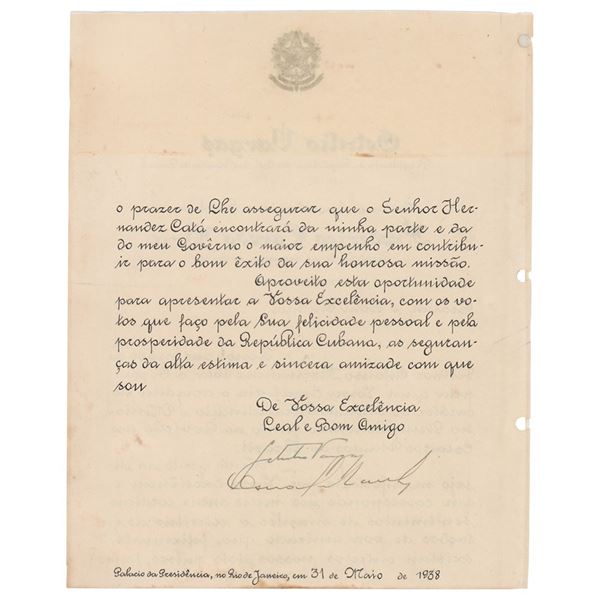 o prazer de Lhe assegurar que o Senhor Her-
nandez Catá encontrará da minha parte e da
do meu Govêrno o maior empenho em contribu-
ir para o bom êxito da sua honrosa missão.
Aproveito esta oportunidade
para apresentar a Vossa Excelência, com os vo-
tos que faço pela Sua felicidade pessoal e pela
prosperidade da República Cubana, as seguran-
ças da alta estima e sincera amizade com que
sou
De Vossa Excelência
Leal e Bom Amigo
Getulio Vargas
Palacio da Presidência, no Rio de Janeiro, em 31 de Maio de 1938